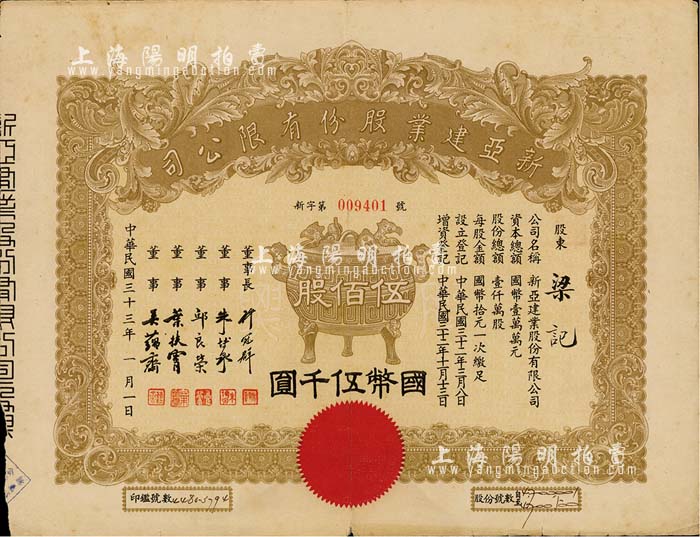 上海陽明拍賣
www.yangmingauction.com
新亞建業股份有限公司
新字第 009401 號
股東 梁記
公司名稱 新亞建業股份有限公司
資本總額 國幣壹萬萬元
股份總額 壹仟萬股
每股金額 國幣拾元一次繳足
設立登記 中華民國三十二年三月八日
增資登記 中華民國三十二年十月十三日
伍佰股
國幣伍千圓
董事長
董事
董事 邱良榮
董事 葉扶霄
董事 吳蘊齋
中華民國三十三年一月一日
上海陽明拍賣
www.yangmingauction.com
上海陽明拍賣
www.yangmingauction.com
印鑑號數
股份號數